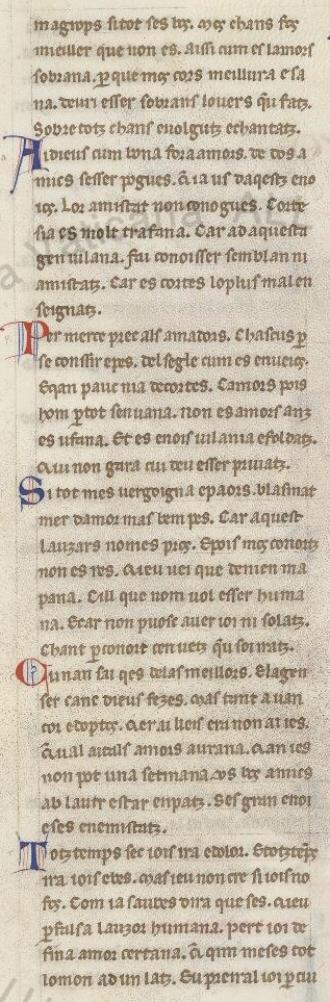 magrops sitot ses bes. mes chans fos
mieiller que non es. Aissi cum es lamors
sobrana. per que mos cors meillura esa
na. deuri esser sobrans louers quieu fatz.
Sobre totz chans euolgutz echantatz.
Ai dieus cum bona fora amors. de dos a
mics sesser pogues. Qe ia us daqestz eno
ios. Lor amistat non conogues. Corte
sia es molt trafana. Car ad aquesta
gen uilana. fai conoisser semblan ni
amistatz. Car es cortes lo plus mal en
seignatz.
Per merce prec als amadors. Chascus per
se conssir e pes. del segle cum es enueios.
E qan pauc nia de cortes. Camors pois
hom per tot sen uana. non es amors anz
es ufana. Et es enois uilania e foldatz.
Qui non gara cui deu esser priuatz.
Si tot mes uergoigna e paors. blasmat
mer damor mas bem pes. Car aquest
lauzars nomes pros. E pois mos conortz
non es res. Qieu uei que de nien ma
pana. Cill que nom uol esser huma
na. E car non puosc auer ioi ni solatz.
Chant per conort cen uetz qui soi natz.
Cu nan sai qes de las meillors. El a gen
ser canc dieus fezes. mas tant a uan
cor e doptos. Qer ai lieis era non ai ies.
Qe ual aitals amors aurana. Qan ies
non pot una setmana. us bos amics
ab lautr estar en patz. Ses gran enoi
e ses enemistatz.
Totz temps sec iois ira e dolor. E totz temps
ira iois e bes. mas ieu non cre si iois no
fos. Com ia saubes dira que ses. Qieu
per falsa lauzor humana. pert ioi de
fina amor certana. Qe qim meses tot
lo mon ad un latz. Eu preiral ioi per cui